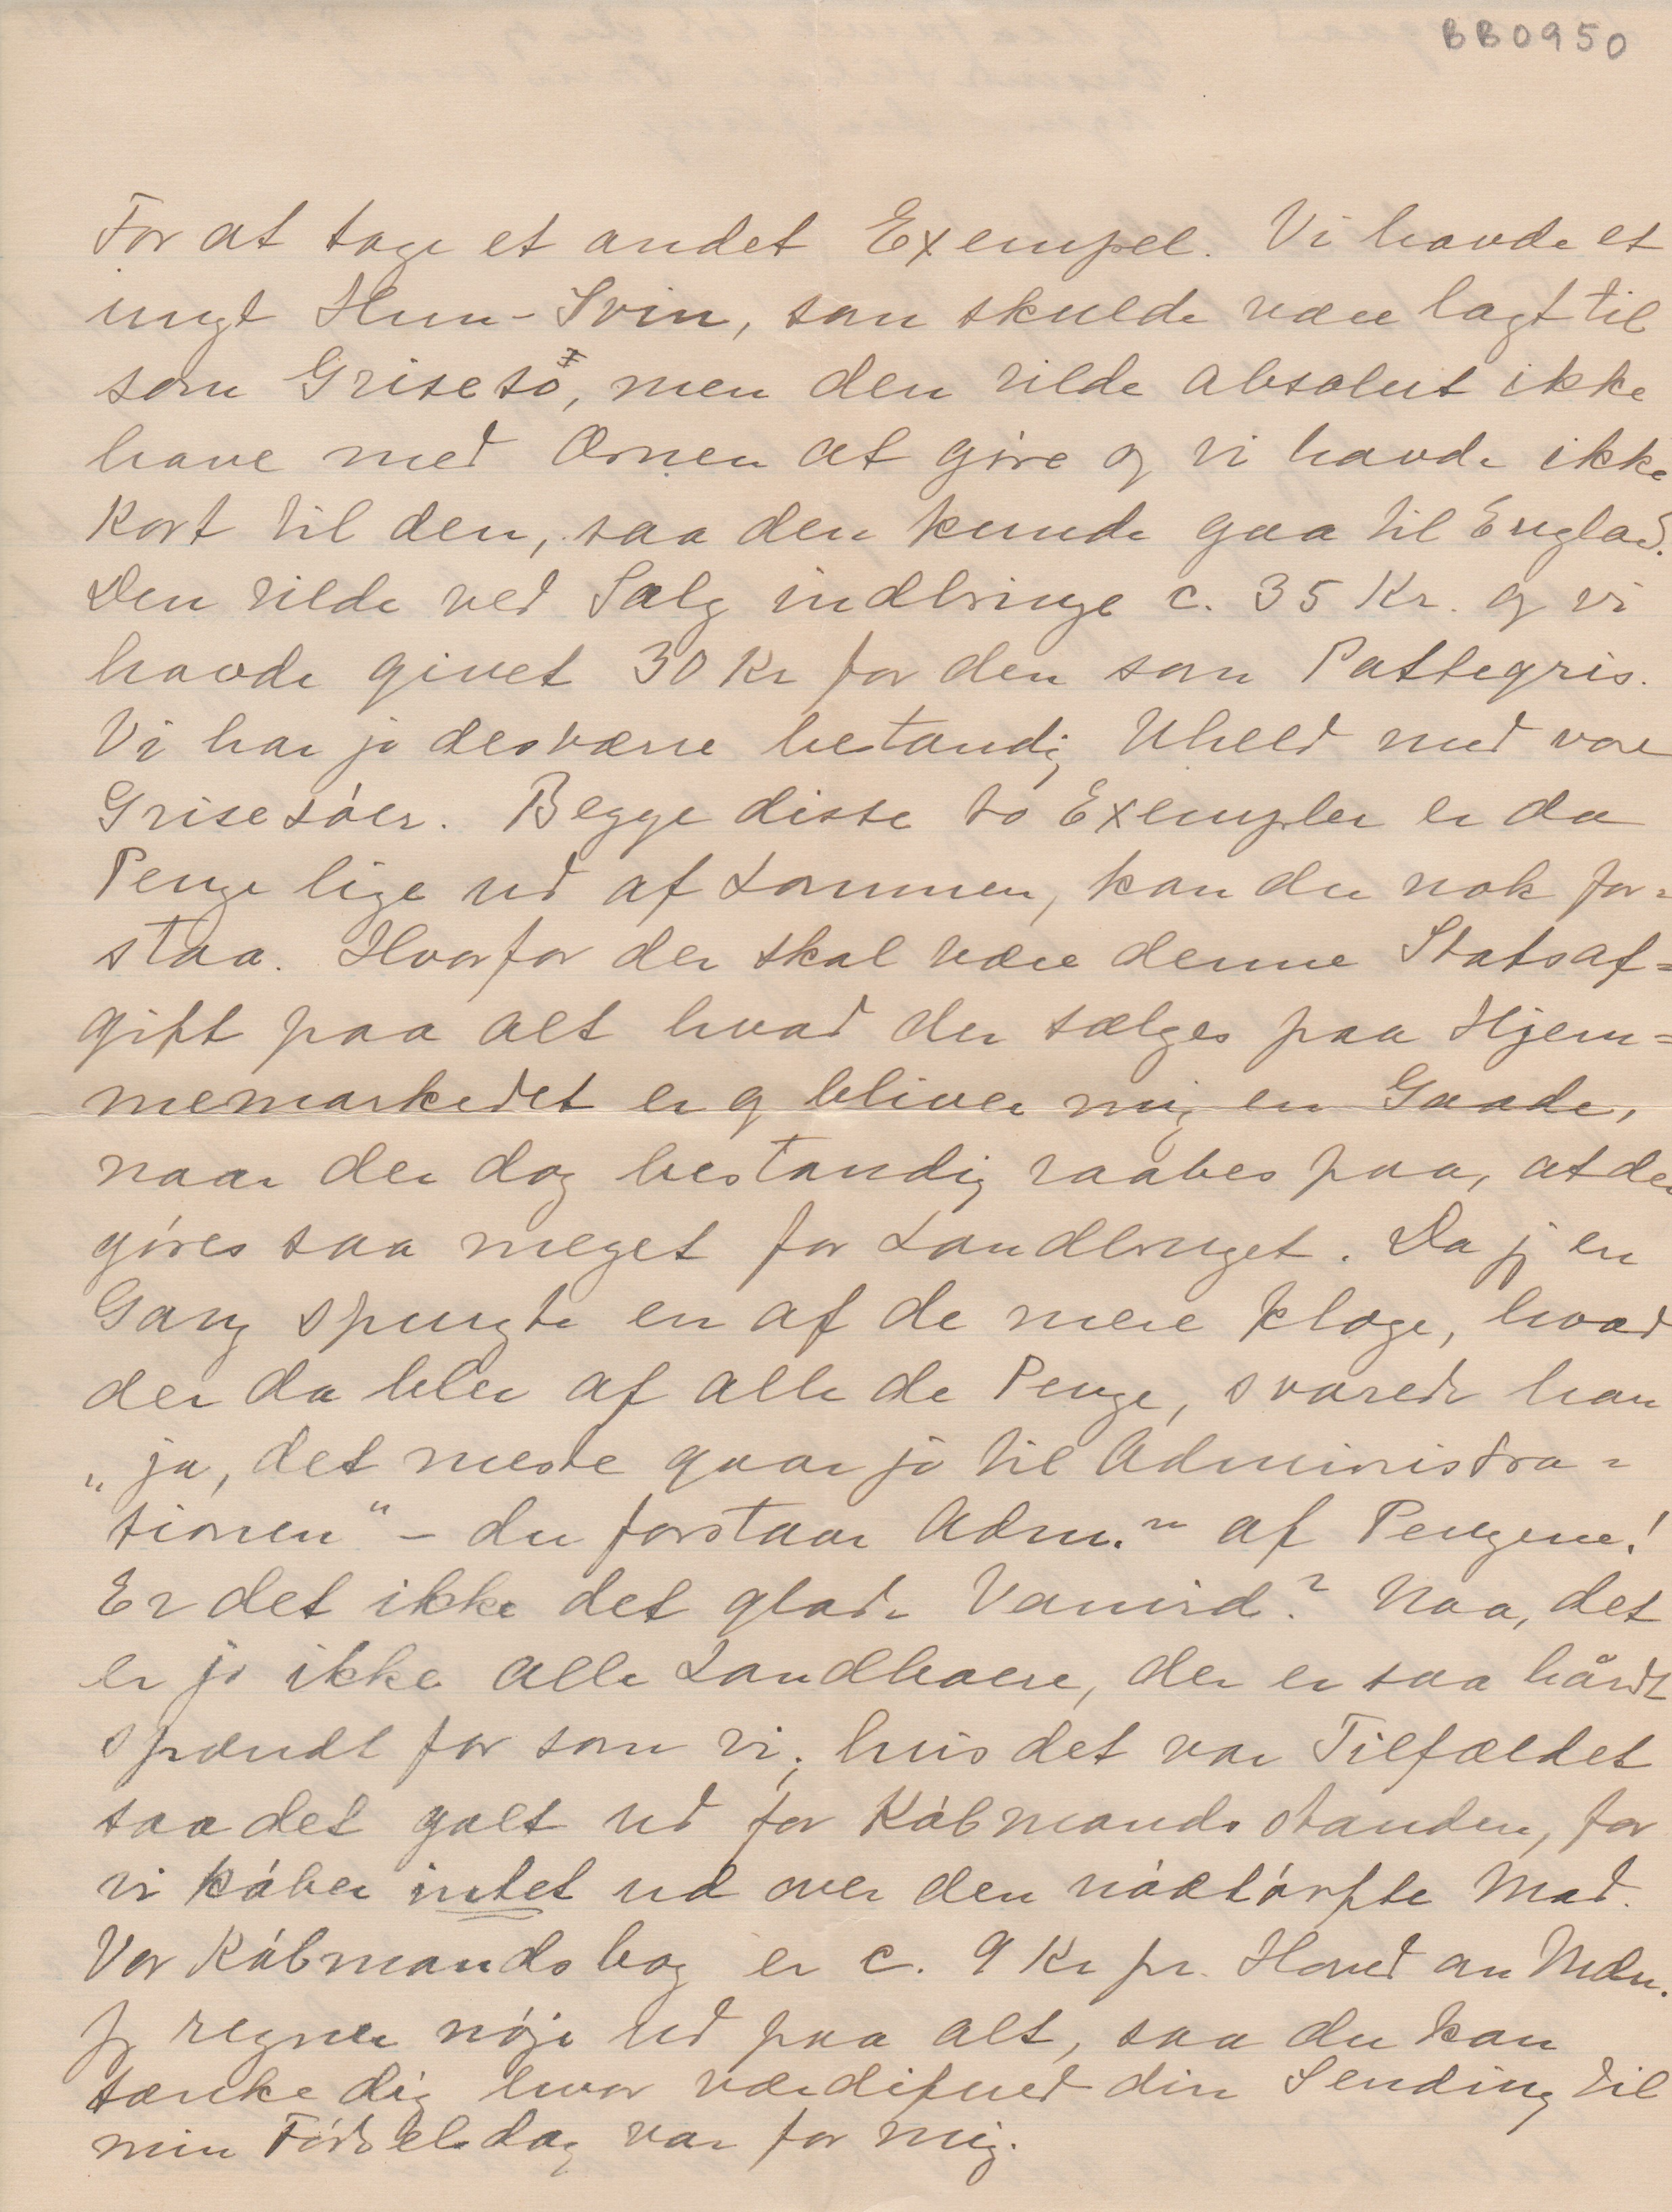 BB0950
For at tage et andet Exempel. Vi havde et
ungt Hun-Svin, som skulde være lagt til
som Griseso, men den vilde absolut ikke
have med Ornen at gøre og vi havde ikke
Kort til den, saa den kunde gaa til Englad.
Den vilde ved Salg indbringe c. 35 Kr. og vi
havde givet 30 Kr for den som Pattegris.
Vi har jo desværre bestandig Uheld med vore
Grisesøer. Begge disse to Exempler er da
Penge lige ud af Lommen, kan du nok for=
staa. Hvorfor der skal være denne Statsaf=
gift paa alt hvad der sælges paa Hjem=
memarkedet er og bliver mig en Gaade,
naar der dog bestandig raabes paa, at der
gøres saa meget for Landbruget. Da jeg en
Gang spurgte en af de mere kloge, hvad
der da blev af alle de Penge, svarede han
„ja, det meste gaar jo til Administra=
tionen“ – du forstaar Adm.n af Pengene!
Er det ikke det glade Vanvid? Naa, det
er jo ikke alle Landboere, der er saa hårdt
spændt for som vi; hvis det var Tilfældet
saa det galt ud for Købmandsstanden, for
vi køber intet ud over den nødtørfte Mad.
Vor Købmandsbog er c. 9 Kr pr. Hoved om Mdn.
Jeg regner nøje ud paa alt, saa du kan
tænke dig hvor værdifuld din Sending til
min Fødselsdag var for mig.